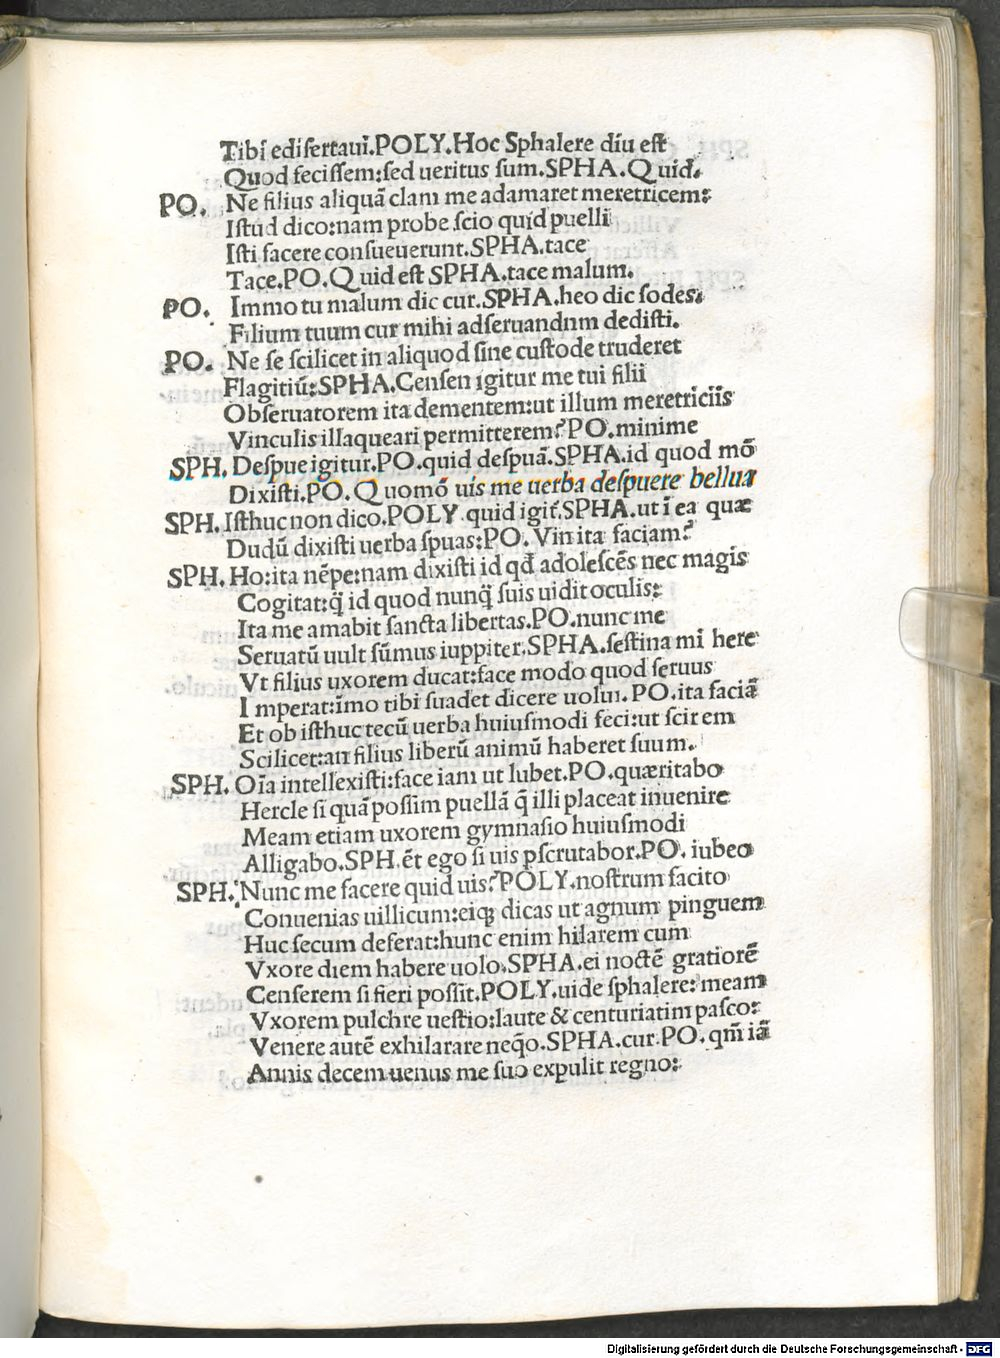 Tibi edisertaui.POLY.Hoc Sphalere diu est
Quod fecissem:sed ueritus sum.SPHA.Quid.
PO. Ne filius aliquã clam me adamaret meretricem:
Istud dico:nam probe scio quid puelli
Isti facere consueuerunt.SPHA.tace
Tace.PO.Quid est SPHA.tace malum.
PO. Immo tu malum dic cur.SPHA.heo dic sodes:
Filium tuum cur mihi adseruandnm dedisti.
PO. Ne se scilicet in aliquod sine custode truderet
Flagitiũ:SPHA.Censen igitur me tui filii
Obseruatorem ita dementem:ut illum meretriciis
Vinculis illaqueari permitterem?PO.minime
SPH. Despue igitur.PO.quid despuã.SPHA.id quod mõ
Dixisti.PO.Quomõ uis me uerba despuere bellua
SPH. Isthuc non dico.POLY.quid igit̃.SPHA.ut ĩ ea quæ
Dudũ dixisti uerba spuas:PO.Vin ita faciam?
SPH. Ho:ita nẽpe:nam dixisti id qđ adolescẽs nec magis
Cogitat:q̃ id quod nunq̃ suis uidit oculis:
Ita me amabit sancta libertas.PO.nunc me
Seruatũ uult sũmus iuppiter.SPHA.festina mi here
Vt filius uxorem ducat:face modo quod seruus
Imperat:ĩmo tibi suadet dicere uolui.PO.ita faciã
Et ob isthuc tecũ uerba huiusmodi feci:ut scirem
Scilicet:an filius liberũ animũ haberet suum.
SPH. Oĩa intellexisti:face iam ut lubet.PO.quæritabo
Hercle si quã possim puellã q̃ illi placeat inuenire
Meam etiam uxorem gymnasio huiusmodi
Alligabo.SPH.ẽt ego si uis pscrutabor.PO.iubeo
SPH. Nunc me facere quid uis?POLY.nostrum facito
Conuenias uillicum:eiq; dicas ut agnum pinguem
Huc secum deferat:hunc enim hilarem cum
Vxore diem habere uolo.SPHA.ei noctẽ gratiorẽ
Censerem si fieri possit.POLY.uide sphalere:meam
Vxorem pulchre uestio:laute & centuriatim pasco:
Venere autẽ exhilarare neq̃o.SPHA.cur.PO.qm̃ iã
Annis decem uenus me suo expulit regno:
Digitalisierung gefördert durch die Deutsche Forschungsgemeinschaft - DFG